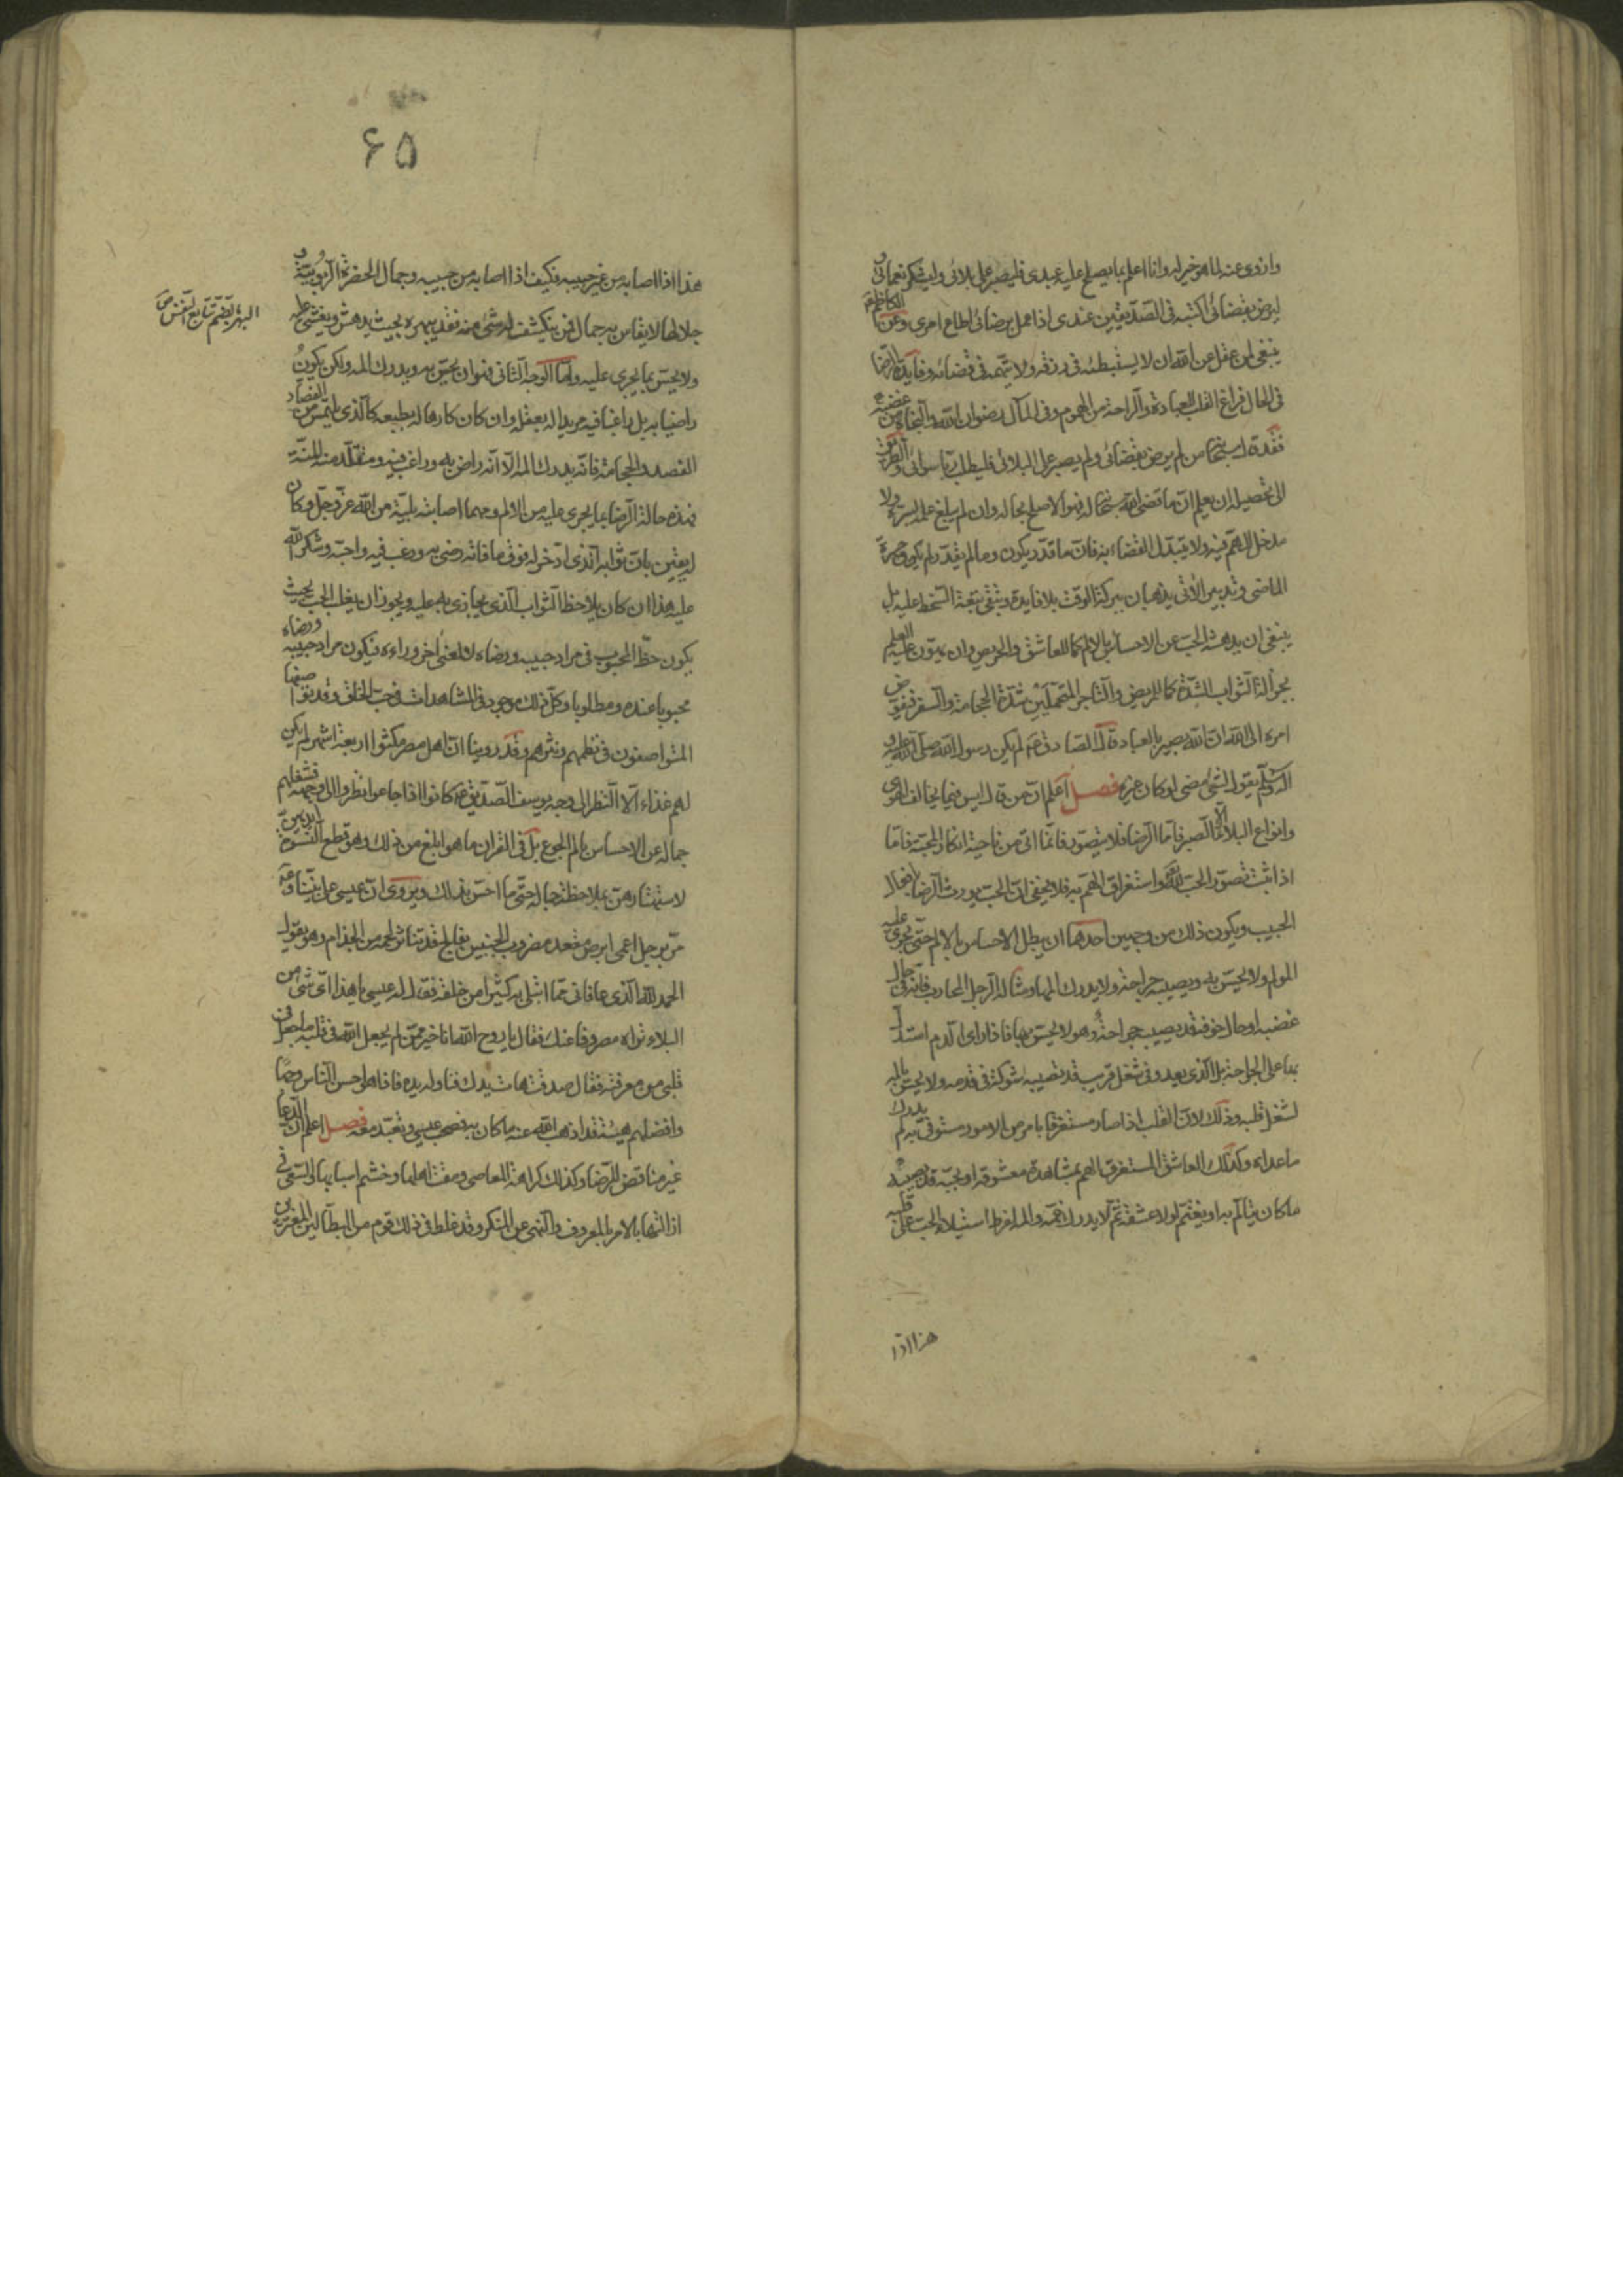 وازوى عنه لما هو خير له وانا اعلم بما يصلح عليه عبدى فليصبر على بلائى وليشكر نعمائى و
ليرض بقضائى اكتبه فى الصدّيقين عندى اذا عمل برضائى واطاع امرى وعن الكاظم ع
ينبغى لمن عقل عن الله ان لا يستبطئه فى رزقه ولا يتهمه فى قضائه وفايدة الرّضا
فى الحال فراغ القلب للعبادة والراحة من الهموم وفى المآل رضوان الله والنجاة من غضبه
فقد قال سبحانه من لم يرض بقضائى ولم يصبر على بلائى فليطلب ربّا سوائى والطريق
الى تحصيله ان يعلم انّ ما قضى الله سبحانه له فهو الاصلح بحاله وان لم يبلغ علمه بسرّه ولا
مدخل للهمّ فيه ولا يتبدّل القضاء به فانّ ما قدّر يكون وما لم يقدّر لم يكن وحسرة
الماضى وتدبير الآتى يذهبان ببركة الوقت بلا فايدة وتبقى تبعة السّخط عليه بل
ينبغى ان يدهشه الحبّ عن الاحساس بالالم كما للعاشق والحريص وان يهوّن عليه العلم
بجزالة الثواب الشدّة كما للمريض والتاجر المتحمّلين شدّة الحجامة والسفر فيفوّض
امره الى الله انّ الله بصير بالعباد قال الصادق ع لم يكن رسول الله صلى الله عليه و
آله وسلّم يقول لشئ مضى لو كان غيره فصل اعلم انّ من قال ليس فيما يخالف الهوى
وانواع البلاء الّا الصبر فامّا الرضا فلا يتصوّر فانّما اتى من ناحية انكار المحبّة فامّا
اذا ثبت تصوّر الحبّ لله واستغراق الهمّ به فلا يخفى انّ الحبّ يورث الرضا بافعال
الحبيب ويكون ذلك من وجهين احدهما ان يبطل الاحساس بالالم حتّى يجرى عليه
المولم ولا يحسّ به ويصيبه جراحة ولا يدرك المها ومثاله الرجل المحارب فانّه فى حال
غضبه او حال خوفه قد يصيبه جراحة وهو لا يحسّ بها فاذا راى الدم استدلّ
به على الجراحة بل الّذى يعدو فى شغل قريب قد تصيبه شوكة فى قدمه ولا يحسّ بالمه
لشغل قلبه وذلك لانّ القلب اذا صار مستغرقا بامر من الامور مستوفى به لم يدرك
ما عداه وكذلك العاشق المستغرق الهمّ بمشاهدة معشوقه او بحبّه قد يصيبه
ما كان يتألّم به او يغتمّ لولا عشقه ثمّ لا يدرك غمّه والمه لفرط استيلاء الحبّ على قلبه
هذا اذا
۶۵
هذا اذا اصابه من غير حبيبه فكيف اذا اصابه من حبيبه وجمال الحضرة الرّبوبيّة و
جلالها لا يقاس به جمال فمن ينكشف له شئ منه فقد يبهره بحيث يدهش ويغشى عليه
البهر بالضم تتابع النفس ص
ولا يحسّ بما يجرى عليه وامّا الوجه الثانى فهو ان يحسّ به ويدرك المه ولكن يكون
راضيا به بل راغبا فيه مريدا له بعقله وان كان كارها له بطبعه كالّذى يلتمس من الفصّاد
الفصد والحجامة فانّه يدرك المه الّا انّه راض به وراغب فيه ومتقلّد منه المنّة
فهذه حالة الرّضا بما يجرى عليه من الالم ومهما اصابته بليّة من الله عزّ وجلّ وكان
له يقين بانّ ثوابه الّذى ادّخر له فوق ما فاته رضى به ورغب فيه واحبّه وشكر الله
عليه هذا ان كان يلاحظ الثواب الّذى يجازى به عليه ويجوز ان يغلب الحبّ بحيث
يكون حظّ المحبوب فى مراد حبيبه ورضاه لا لمعنى آخر وراءه فيكون مراد حبيبه ورضاه
محبوبا عنده ومطلوبا وكلّ ذلك موجود فى المشاهدات فى حبّ الخلق وقد تواصفها
المتواصفون فى نظمهم ونثرهم وقد روينا انّ اهل مصر مكثوا اربعة اشهر لم يكن
لهم غذاء الّا النظر الى وجه يوسف الصّدّيق ع كانوا اذا جاعوا نظروا الى وجهه فشغلهم
جماله عن الاحساس بالم الجوع بل فى القران ما هو ابلغ من ذلك وهو قطع النسوة ايديهنّ
لاستهتارهنّ بملاحظة جماله حتّى ما احسّن بذلك ويروى انّ عيسى على نبيّنا وع
مرّ برجل اعمى ابرص مقعد مضروب الجنبين بفالج قد تناثر لحمه من الجذام وهو يقول
الحمد لله الّذى عافانى ممّا ابتلى به كثيرا من خلقه فقال له عيسى يا هذا اىّ شئ من
البلاء تراه مصروفا عنك فقال يا روح الله انا خير ممّن لم يجعل الله فى قلبه ما جعل فى
قلبى من معرفته فقال صدقت هات يدك فناوله يده فاذا هو احسن الناس وجها
وافضلهم هيئة قد اذهب الله عنه ما كان به فصحب عيسى وتعبّد معه فصل اعلم انّ الدّعا
غير مناقض للرّضا وكذلك كراهة المعاصى ومقت اهلها وحسم اسبابها والسّعى فى
ازالتها بالامر بالمعروف والنّهى عن المنكر وقد غلط فى ذلك قوم من البطّالين المغترّين